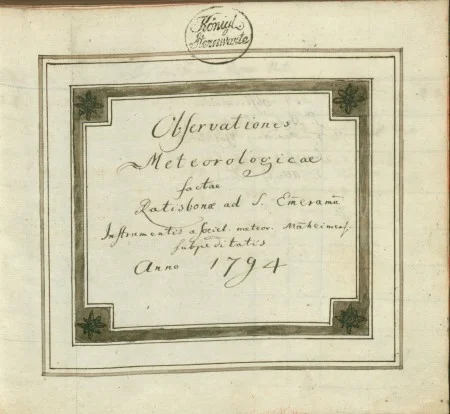 Königl.
Sternwarte
Observationes
Meteorologicae
factae
Ratisbonæ ad S. Em̃eram̃
Instrumentis a Societ. meteor. Manheimens.
suppeditatis
Anno 1794